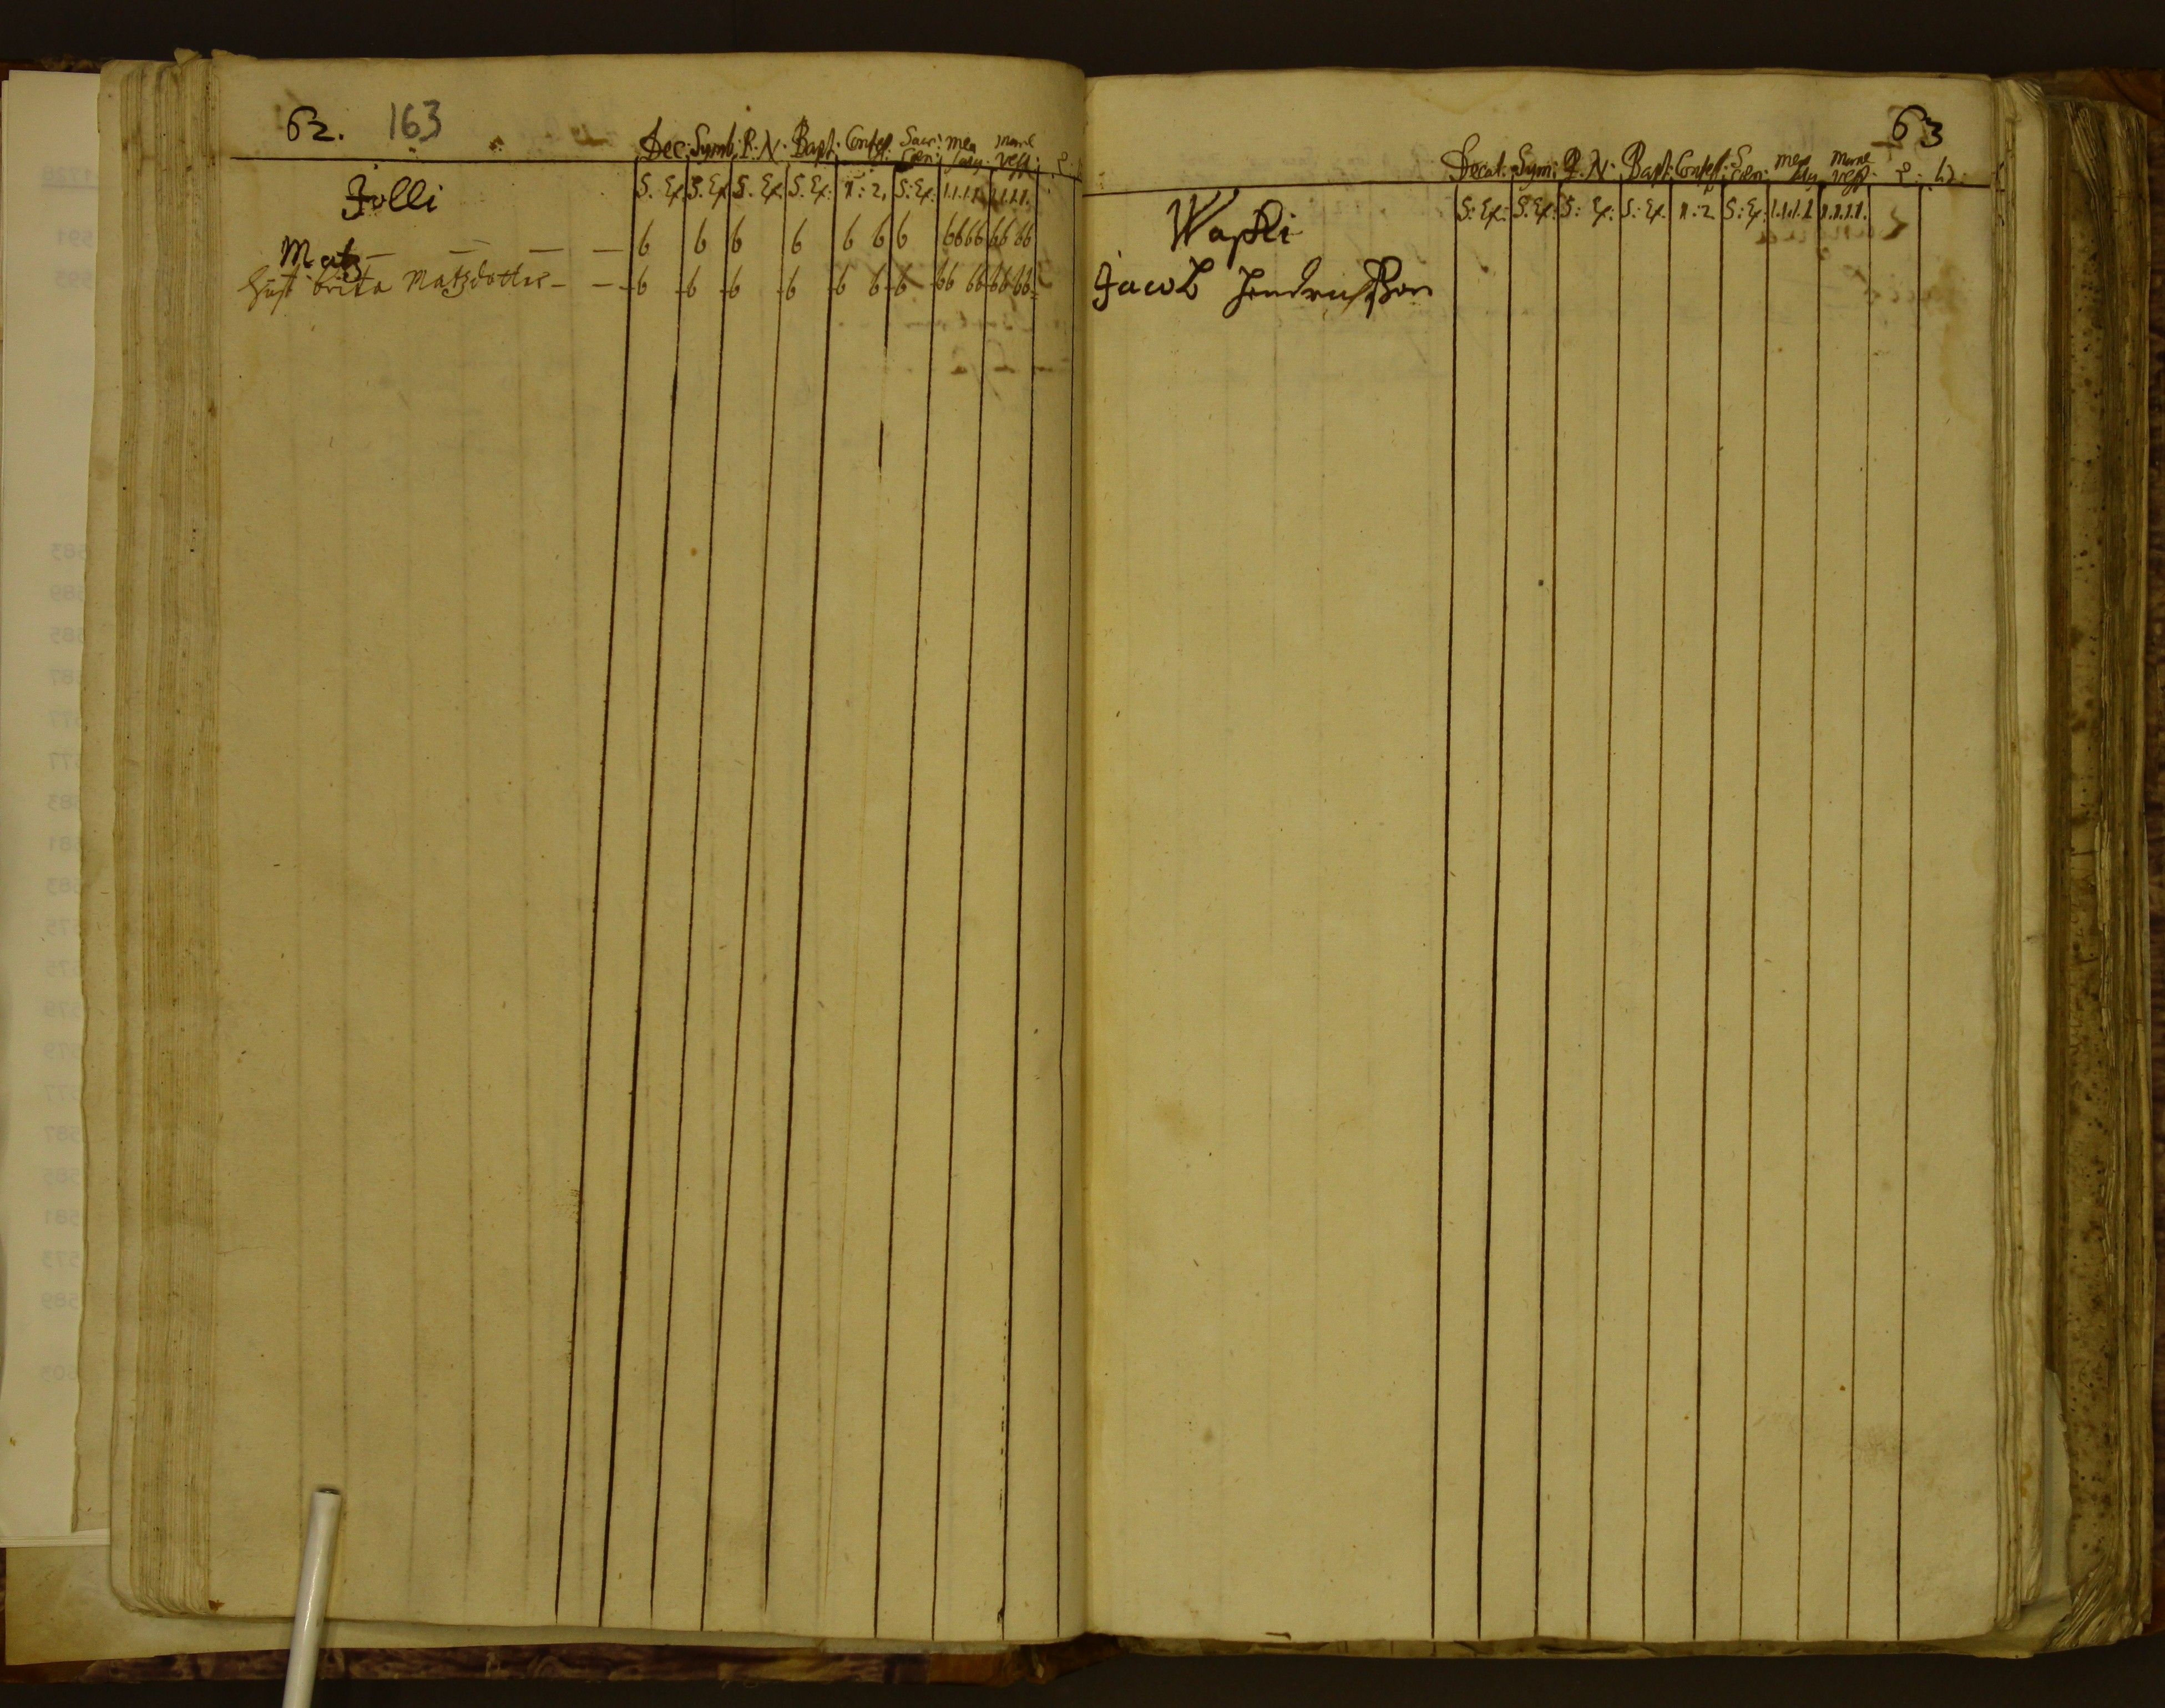 62. 163
Dec: Symb: P: N: Bapt: Confess: Sacr: Cœn: mea
Jolli S. Ex. S. Ex. S. Ex. S. Ex: 1: 2. S: Ex: 1.1.1.1. 1.1.1.1.
Matz — — — — 6 6 6 6 6 6 6 6666 6666
Hust: Brita Matzdotter — — 6 6 6 6 6 6 6 66 66 6666
63
Decal: Sym: P. N: Bapt: Confess: S Cœn:
S: Ex: S. Ex: S: Ex: S: Ex. 1: 2 S: Ex: 1.1.1.1 1.1.1.1.
Waski
Jacob Hendrichsson